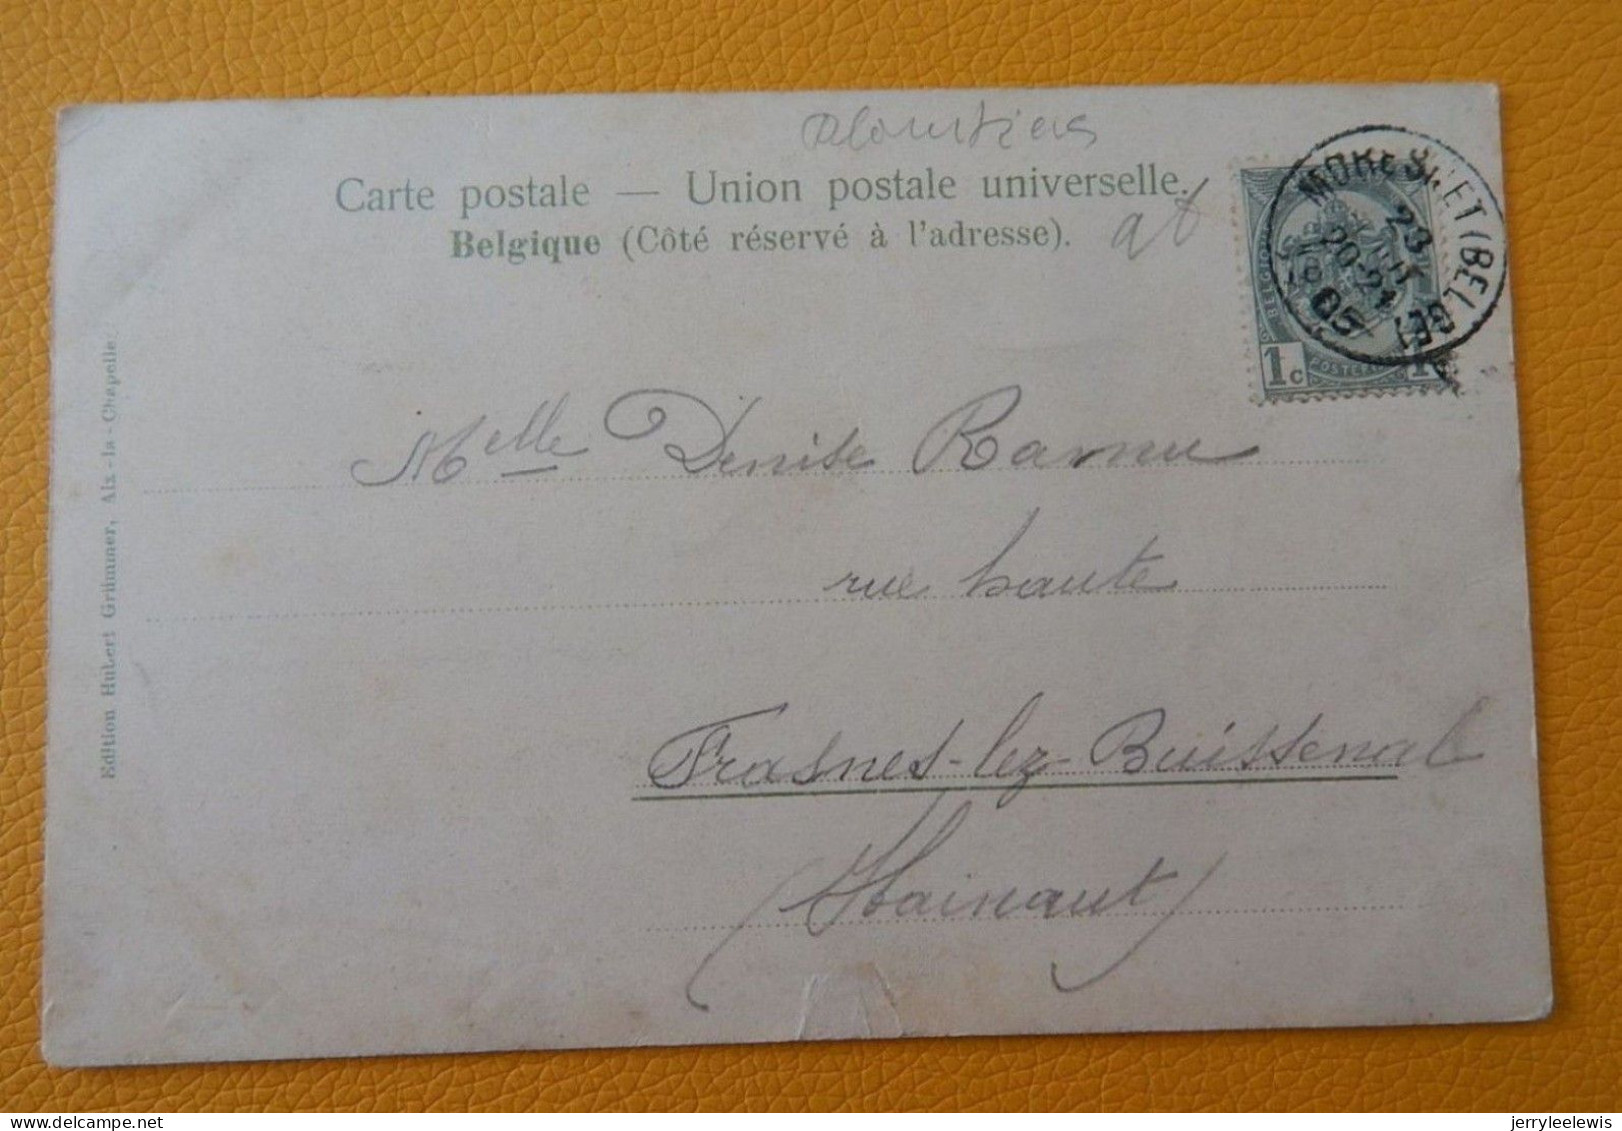 Carte postale — Union postale universelle.
Belgique (Côté réservé à l'adresse).
MORESNET (BELGE)
23
20-21
05
BELGIQUE
1c
Melle Denise Ramu
rue haute
Frasnes-lez-Buissenal
(Hainaut)
Edition Hubert Grimmer, Aix-la-Chapelle.
delcampe.net
jerryleelewis